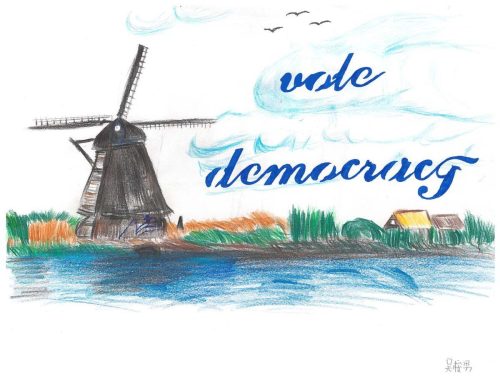 vote
democracy